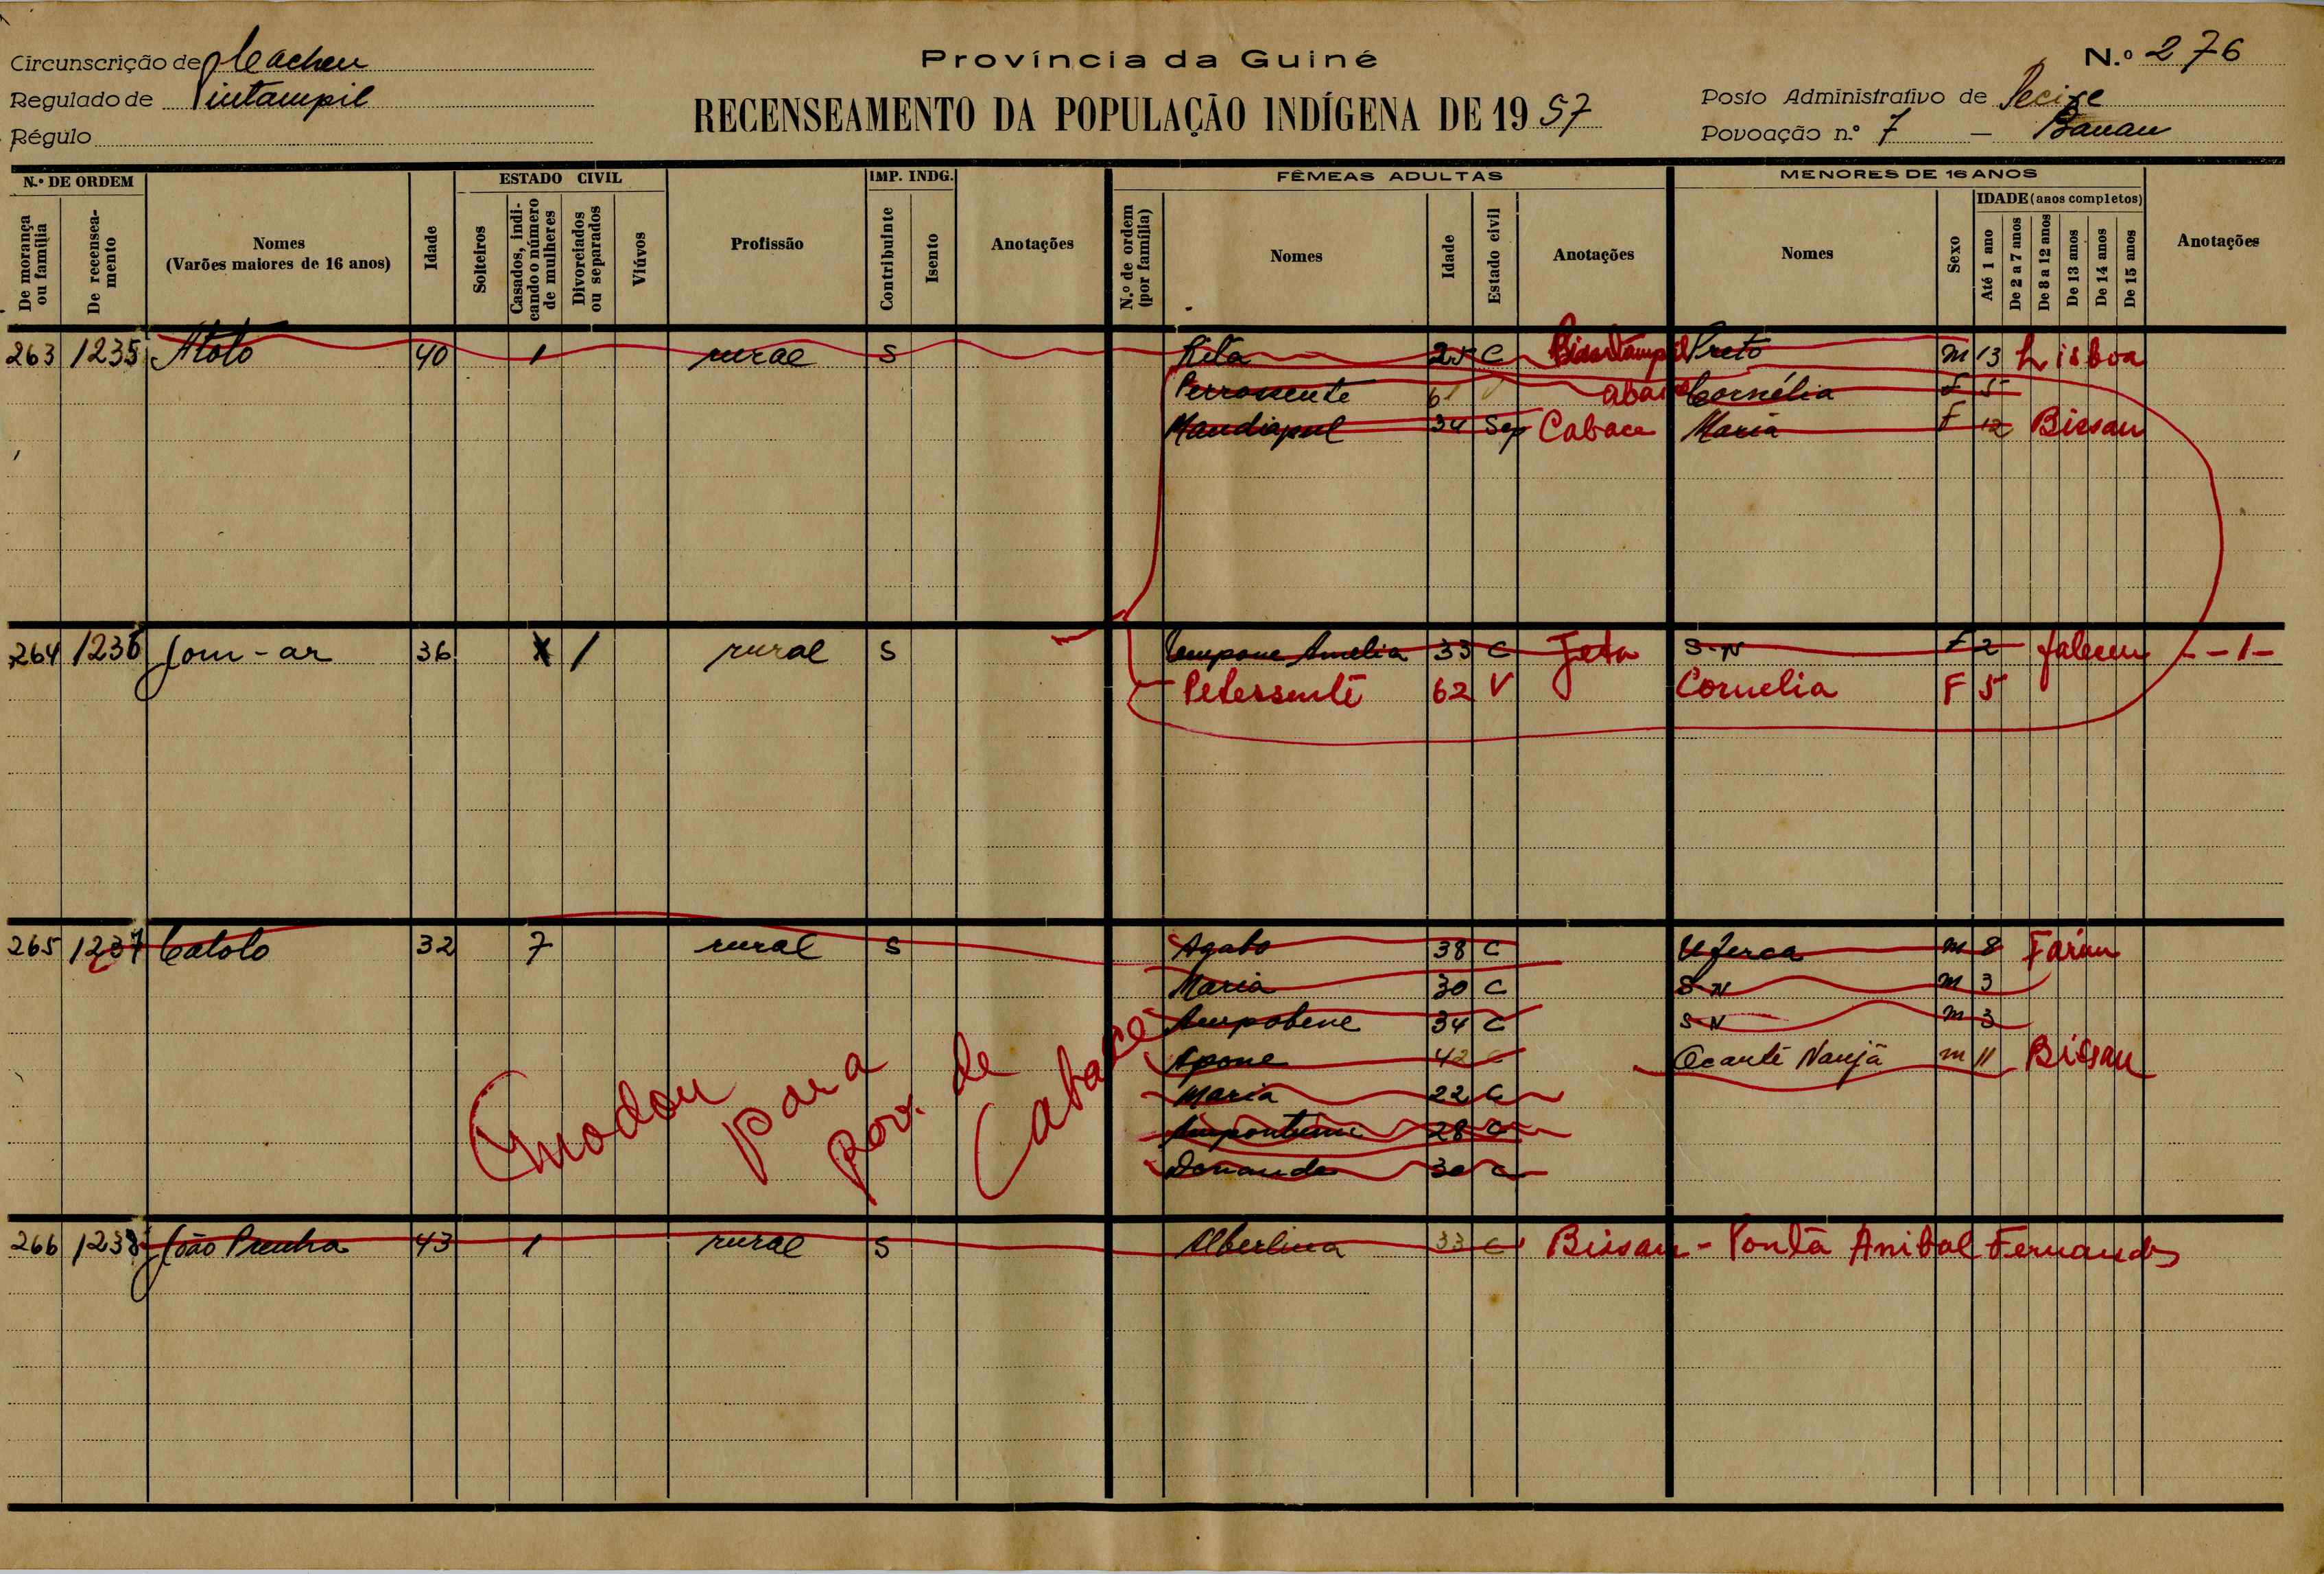 Circunscrição de Cacheu
Regulado de Pintampil
Régulo
Província da Guiné
RECENSEAMENTO DA POPULAÇÃO INDÍGENA DE 19 57
N.º 276
Posto Administrativo de Pecixe
Povoação n.º 7 — Banau
N.º DE ORDEM
De morança ou família
De recenseamento
Nomes
(Varões maiores de 16 anos)
Idade
ESTADO CIVIL
Solteiros
Casados, indicando o número de mulheres
Divorciados ou separados
Viúvos
Profissão
IMP. INDG.
Contribuinte
Isento
Anotações
FÊMEAS ADULTAS
N.º de ordem (por família)
Nomes
Idade
Estado civil
Anotações
MENORES DE 16 ANOS
Nomes
Sexo
IDADE (anos completos)
Até 1 ano
De 2 a 7 anos
De 8 a 12 anos
De 13 anos
De 14 anos
De 15 anos
Anotações
263 1235 40 1 rural S Rita 25 C Preto m 13 Lisboa
61 Cornélia F 5
34 Sep Cabace Maria F 12 Bissau
264 1236 Jom-ar 36 X / rural S Amelia 33 C Jeta S-N F 2 faleceu - 1 -
Petessentê 62 V Cornelia F 5
265 1237 Catolo 32 7 rural S Agabo 38 C m 8 Farim
Maria 30 C S N m 3
Ampobene 34 C S N m 3
Apone 42 C Ocantê Nanjã m 11 Bissau
Maria 22 C
28 C
30 C
mudou para pov. de Cabace
266 1238 João 43 1 rural S Albertina 33 C Bissau - Pontã Anibal Fernandes